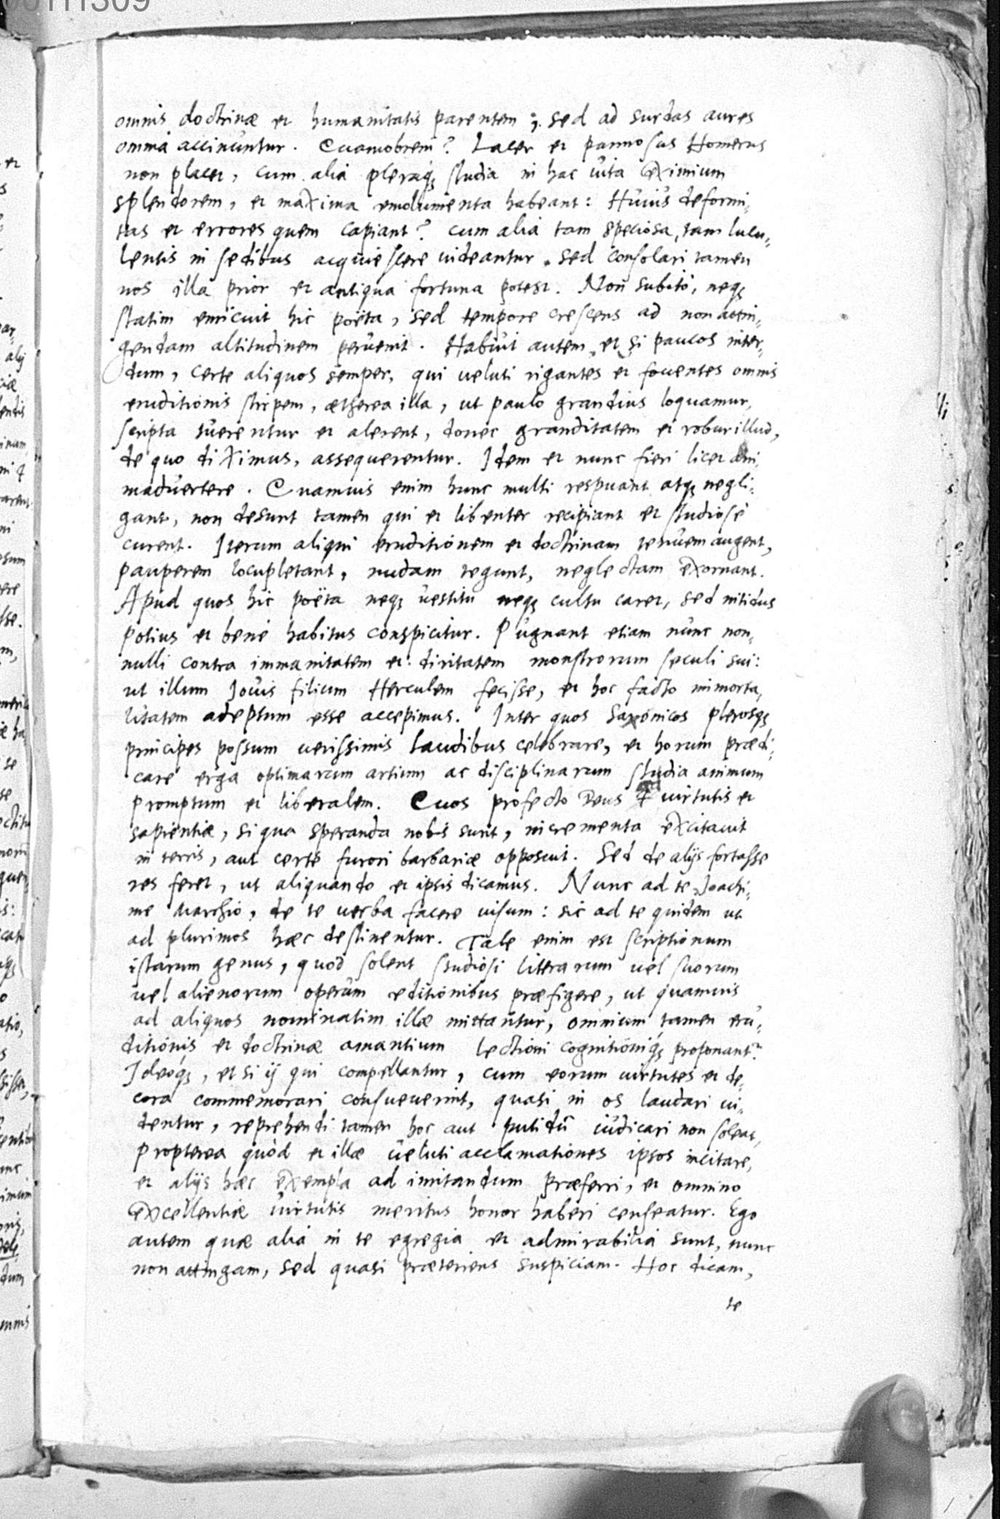 omnis doctrinæ et humanitatis parentem; sed ad surdas aures
omnia accinuntur. Quamobrem? Lacer et pannosus Homerus
non placet, cum alia pleraq; studia in hac vita eximium
splendorem, et maxima emolumenta habeant: Huius deformi-
tas et errores quem capiant? cum alia tam speciosa, tam lucu-
lentis in sedibus acquiescere uideantur. Sed consolari tamen
nos illa prior et antiqua fortuna potest. Non subitò, neq;
statim emicuit hic poëta, sed tempore crescens ad non attin-
gendam altitudinem peruenit. Habuit autem, et si paucos inter-
dum, certe aliquos semper, qui ueluti rigantes et fouentes omnis
eruditionis stirpem, ætherea illa, ut paulo grandius loquamur,
scripta tuerentur et alerent, donec granditatem et robur illud,
de quo diximus, assequerentur. Idem et nunc fieri licet ani-
maduertere. Quamuis enim hunc multi respuant atq; negli-
gant, non desunt tamen qui et libenter recipiant et studiosè
curent. Iterum aliqui eruditionem et doctrinam tenuem augent,
pauperem locupletant, nudam tegunt, neglectam exornant.
Apud quos hic poëta neq; uestitu neq; cultu caret, sed nitidus
potius et bene habitus conspicitur. Pugnant etiam nunc non-
nulli contra immanitatem et diritatem monstrorum seculi sui:
ut illum Iouis filium Herculem fecisse, et hoc facto immorta-
litatem adeptum esse accepimus. Inter quos Saxonicos plerosq;
principes possum uerissimis laudibus celebrare, et horum prædi-
care erga optimarum artium ac disciplinarum studia animum
promptum et liberalem. Quos profecto Deus ad virtutis et
sapientiæ, si qua speranda nobis sunt, incrementa excitauit
in terris, aut certè furori barbariæ opposuit. Sed de alijs fortasse
res feret, ut aliquando et ipsis dicamus. Nunc ad te Ioachi-
me Marchio, de te uerba facere uisum: sic ad te quidem ut
ad plurimos hæc destinentur. Tale enim est scriptionum
istarum genus, quod solent studiosi litterarum uel suorum
uel alienorum operum editionibus præfigere, ut quamuis
ad aliquos nominatim illæ mittantur, omnium tamen eru-
ditionis et doctrinæ amantium lectioni cognitioniq; proponantur
Ideoq;, et si ij qui compellantur, cum eorum uirtutes et de-
cora commemorari consueuerint, quasi in os laudari ui-
dentur, reprehendi tamen hoc aut putidũ iudicari non soleat,
Propterea quòd et illæ ueluti acclamationes ipsos incitare,
et alijs hæc exempla ad imitandum præferri, et omnino
excellentiæ uirtutis meritus honor haberi censeatur. Ego
autem quæ alia in te egregia et admirabilia sunt, nunc
non attingam, sed quasi præteriens suspiciam. Hoc dicam,
te